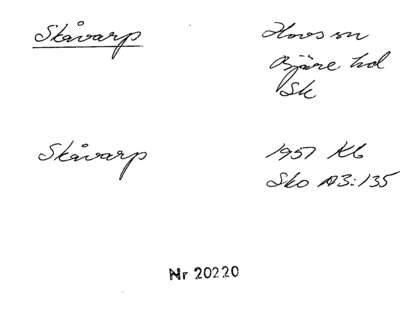 Skåvarp
Hovs sn
Bjäre hd
Sk
Skåvarp
1957 Kb
Sko A3:135
Nr 20220